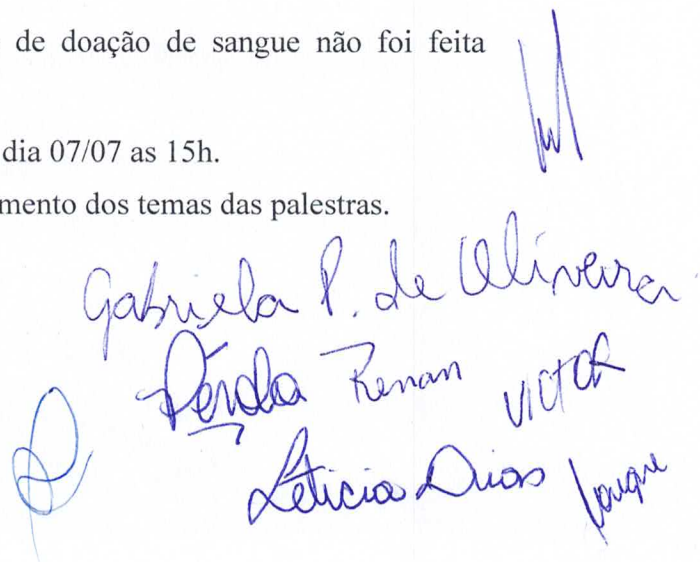 de doação de sangue não foi feita
dia 07/07 as 15h.
mento dos temas das palestras.
Gabriela P. de Oliveira
Pérola Renan VICTOR
Leticia Dias